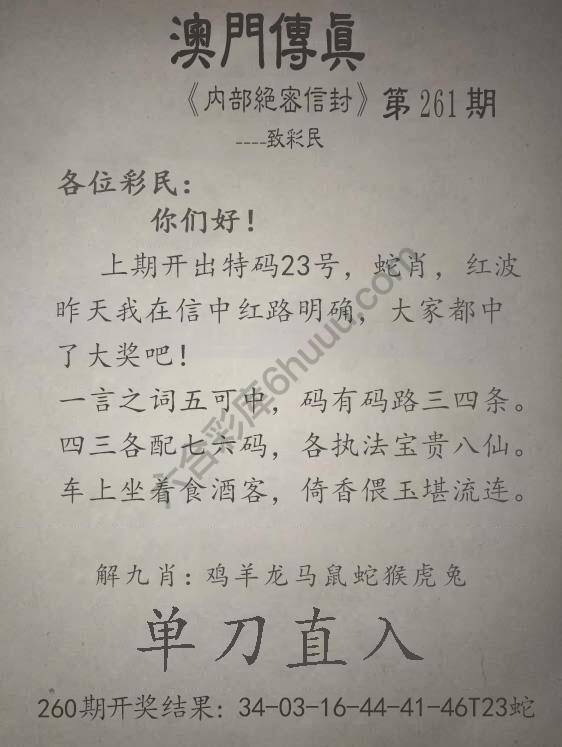 澳門傳眞
《内部絕密信封》第261期
----致彩民
各位彩民：
你们好！
上期开出特码23号，蛇肖，红波
昨天我在信中红路明确，大家都中
了大奖吧！
一言之词五可中，码有码路三四条。
四三各配七六码，各执法宝贵八仙。
车上坐着食酒客，倚香偎玉堪流连。
解九肖：鸡羊龙马鼠蛇猴虎兔
单刀直入
260期开奖结果：34-03-16-44-41-46T23蛇
六合彩库6huuu.com